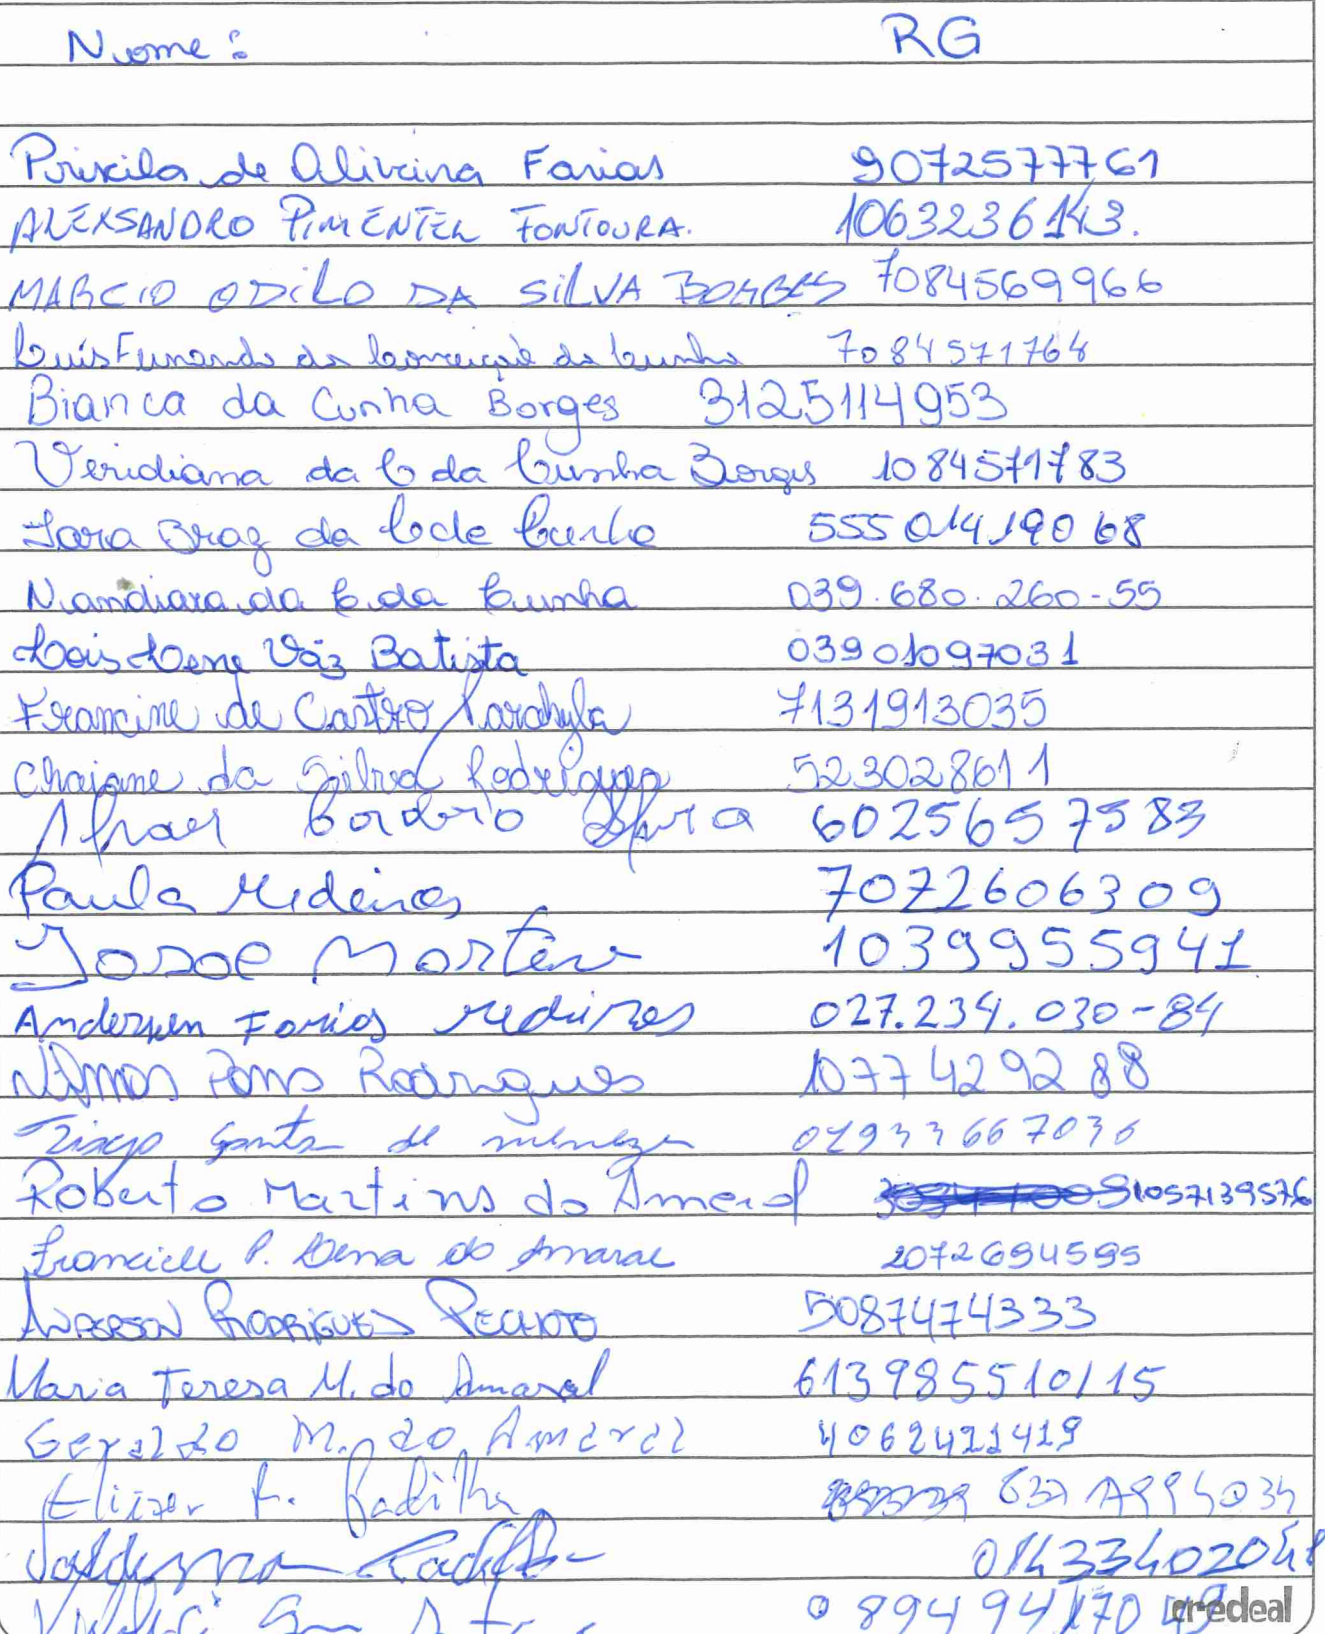 Nome: RG
Priscila de Oliveira Farias 9072577761
ALEXSANDRO PIMENTEL FONTOURA. 1063236143.
MARCIO ODILO DA SILVA BORGES 7084569966
Luís Fernando da Conceição da Cunha 7084571764
Bianca da Cunha Borges 3125114953
Veridiana da C da Cunha Borges 1084571783
Iara Braz da C de Cunha 555 014190 68
Nandiara da C. da Cunha 039.680.260-55
Lois Lene Váz Batista 03901097031
Francine de Castro Parahyba 7131913035
Chaiane da Silva Rodrigues 523028611
6025657583
Paula Medeiros 7072606309
Josoe Martins 1039955941
Anderson Farias Medeiros 027.234.030-84
Rodrigues 1077429288
Tiago Santos de Menezes 01933667036
Roberto Martins do Amaral 1057139576
Francieli P. Lena do Amaral 2072694595
ANDERSON RODRIGUES PECHOTO 5087474333
Maria Teresa M. do Amaral 613985510/15
Geraldo M. do Amaral 4062421419
Eliezer F. Padilha
Valdemar Padilha
credeal